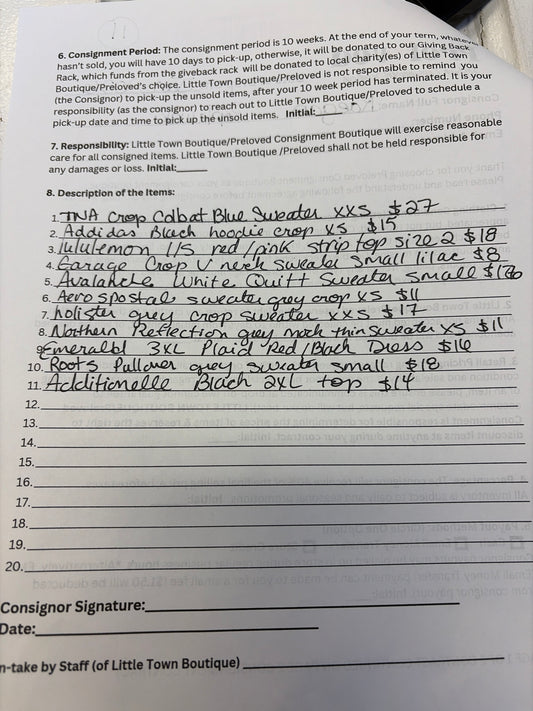 11
6. Consignment Period: The consignment period is 10 weeks. At the end of your term, whatever
hasn't sold, you will have 10 days to pick-up, otherwise, it will be donated to our Giving Back
Rack, which funds from the giveback rack will be donated to local charity(es) of Little Town
Boutique/Preloved's choice. Little Town Boutique/Preloved is not responsible to remind you
(the Consignor) to pick-up the unsold items, after your 10 week period has terminated. It is your
responsibility (as the consignor) to reach out to Little Town Boutique/Preloved to schedule a
pick-up date and time to pick up the unsold items. Initial:
7. Responsibility: Little Town Boutique/Preloved Consignment Boutique will exercise reasonable
care for all consigned items. Little Town Boutique /Preloved shall not be held responsible for
any damages or loss. Initial:
8. Description of the Items:
1. TNA Crop Colbat Blue Sweater XXS $27
2. Addidas Black hoodie crop XS $15
3. lululemon l/s red/pink strip top size 2 $18
4. Garage Crop V neck sweater small lilac $8
5. White Sweater small
6. Aerospostale sweater grey crop XS $11
7. hollister grey crop sweater XXS $17
8. Northern Reflection grey mock thin sweater XS $11
9. Emerald 3XL Plaid Red/Black Dress $16
10. Roots Pullover grey sweater small $18
11. Additionelle Black 2XL top $14
12.
13.
14.
15.
16.
17.
18.
19.
20.
Consignor Signature:
Date:
n-take by Staff (of Little Town Boutique)